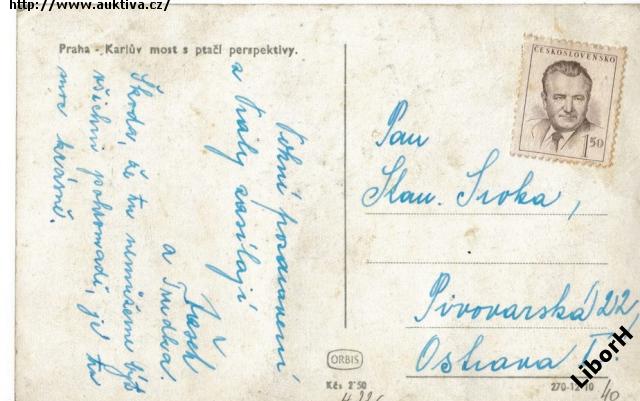 http://www.auktiva.cz/
Praha - Karlův most s ptačí perspektivy.
ČESKOSLOVENSKO
1 50
Pan
Stan. Sroka,
Pivovarská 22,
Ostrava I.
pozdravení
z Prahy zasílají
a Trudka.
Škoda, že tu nemůžeme být
všichni pohromadě, je tu
moc krásně.
ORBIS
Kčs 2'50
270-12-10
40
LiborH